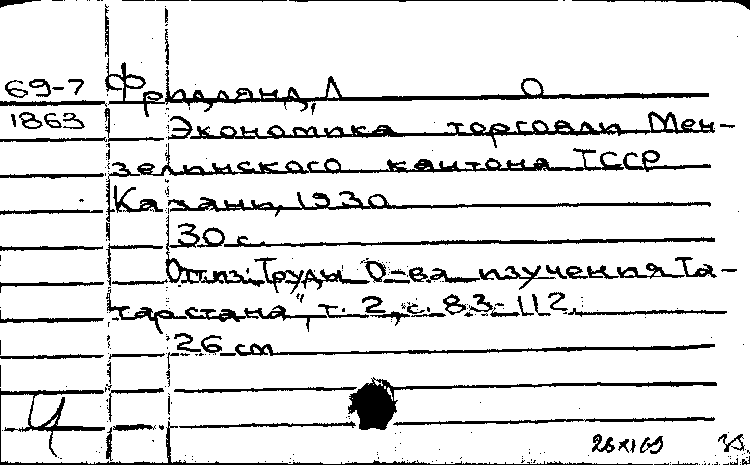 69-7 Фридлянд, Л О
1863 Экономика торговли Мен-
зелинского кантона ТССР
Казань, 1930
30 с.
Отт.из: "Труды О-ва изучения Та-
тарстана", т. 2, с. 83-112.
26 см
26 XI 69